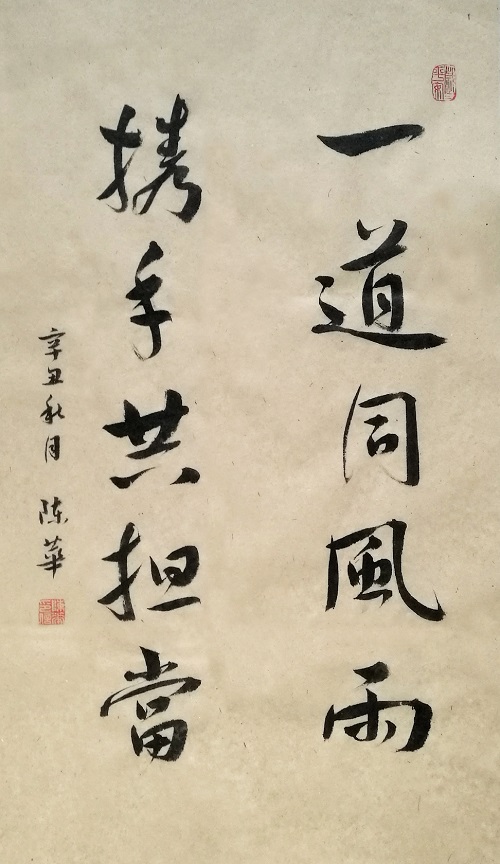 一道同風雨
携手共担當
辛丑秋月 陈華